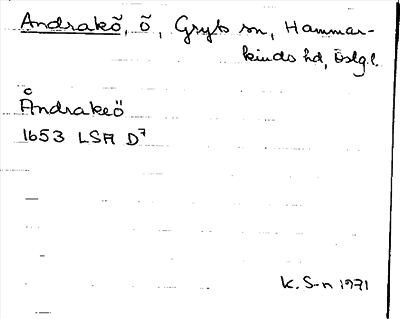 Andrakö, ö, Gryts sn, Hammar-
kinds hd, Östg.l.
Åndrakeö
1653 LSA D7
K. S-n 1971